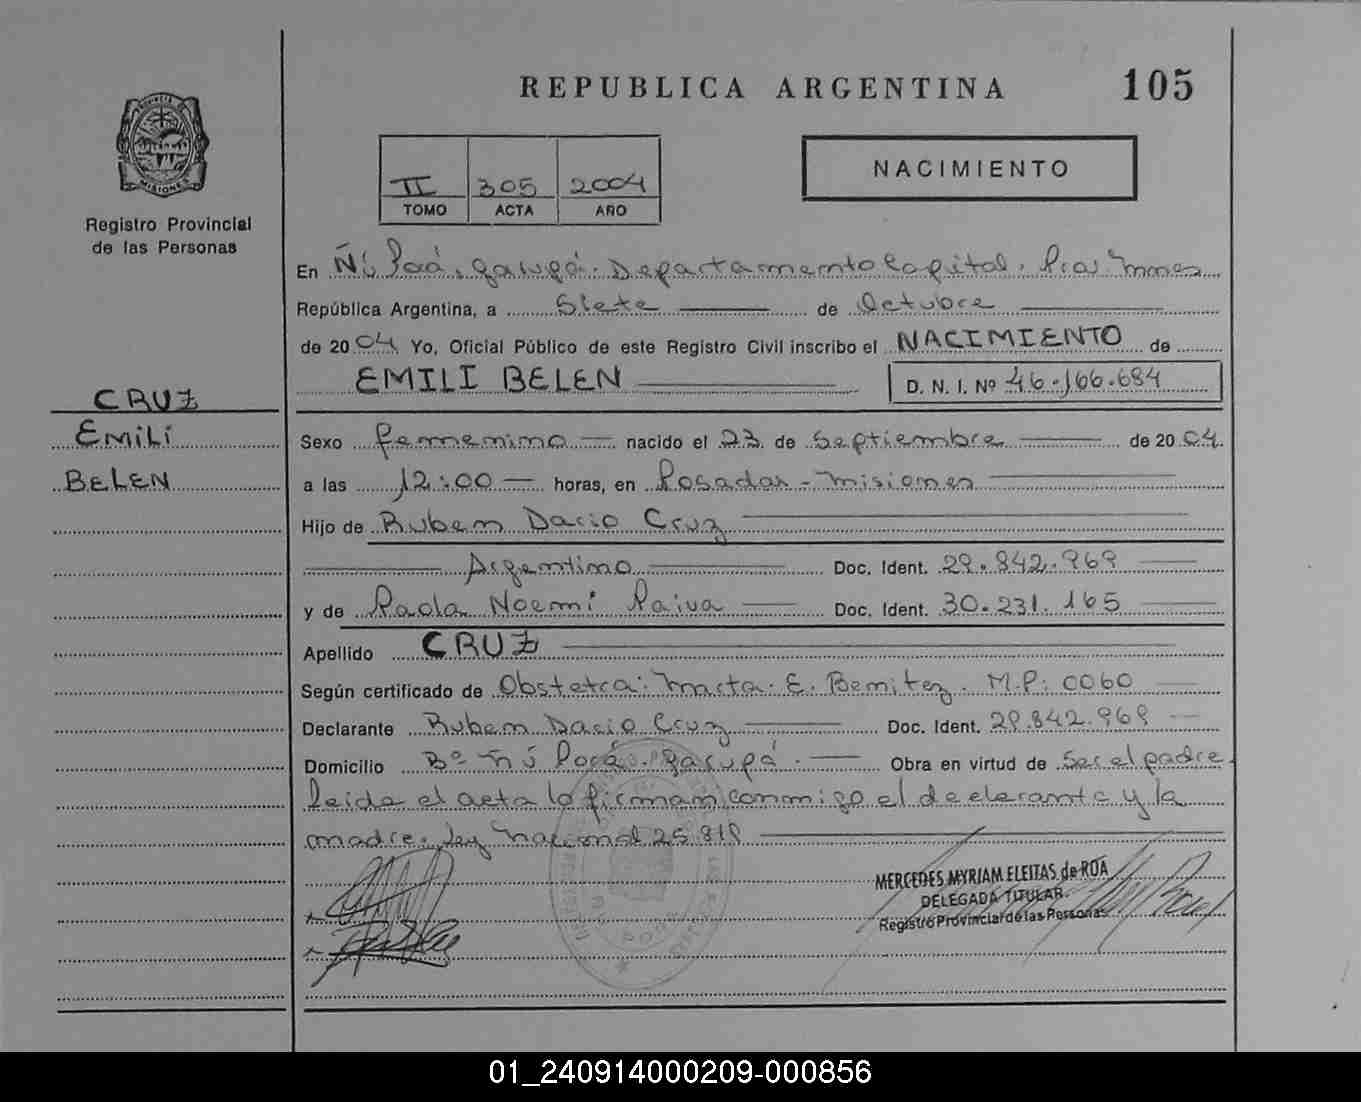 REPUBLICA ARGENTINA
105
PROVINCIA DE
MISIONES
Registro Provincial
de las Personas
II 305 2004
TOMO ACTA AÑO
NACIMIENTO
En Ñú Porá. Garupá. Departamento Capital. Pcia. Mnes
República Argentina, a Siete de Octubre
de 2004 Yo, Oficial Público de este Registro Civil inscribo el NACIMIENTO de
EMILI BELEN D. N. I. Nº 46.166.684
CRUZ
EMILI
BELEN
Sexo femenino nacido el 23 de Septiembre de 2004
a las 12:00 horas, en Posadas - Misiones
Hijo de Ruben Dario Cruz
Argentino Doc. Ident. 29.842.969
y de Paola Noemi Paiva Doc. Ident. 30.231.165
Apellido CRUZ
Según certificado de Obstetra: Marta. E. Benitez. M.P: 0060
Declarante Ruben Dario Cruz Doc. Ident. 29.842.969
Domicilio Bº Ñú Porá. Garupá. Obra en virtud de Ser el padre.
Leida el acta la firman conmigo el declarante y la
madre. Ley Nacional 25.819
MERCEDES MYRIAM ELEITAS de ROA
DELEGADA TITULAR
Registro Provincial de las Personas
01_240914000209-000856